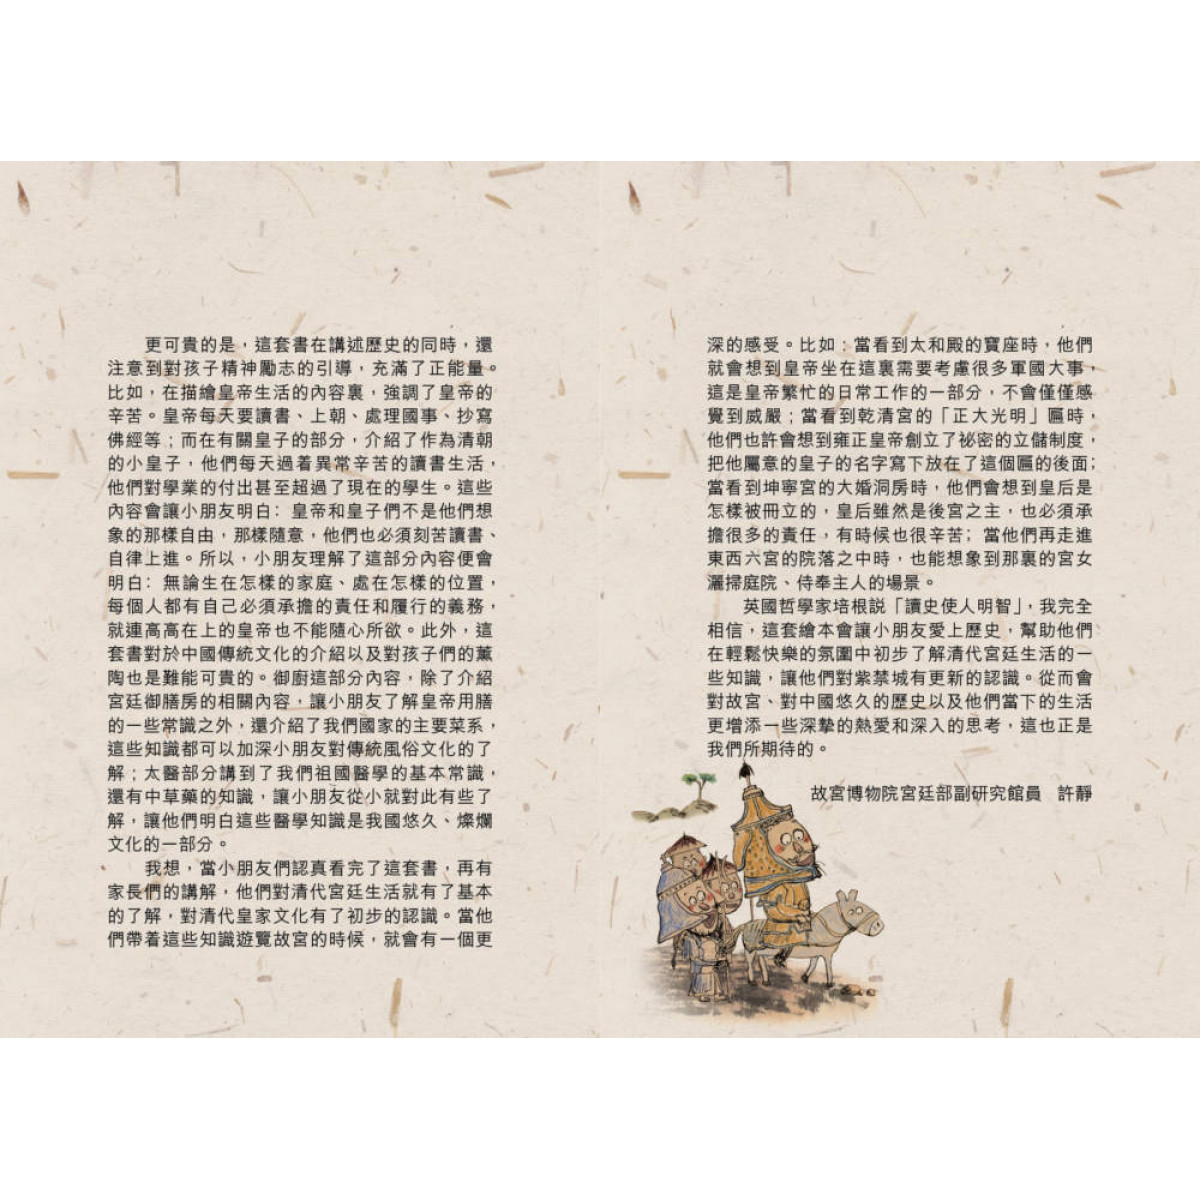 更可貴的是，這套書在講述歷史的同時，還
注意到對孩子精神勵志的引導，充滿了正能量。
比如，在描繪皇帝生活的內容裏，強調了皇帝的
辛苦。皇帝每天要讀書、上朝、處理國事、抄寫
佛經等；而在有關皇子的部分，介紹了作為清朝
的小皇子，他們每天過着異常辛苦的讀書生活，
他們對學業的付出甚至超過了現在的學生。這些
內容會讓小朋友明白：皇帝和皇子們不是他們想
象的那樣自由，那樣隨意，他們也必須刻苦讀書、
自律上進。所以，小朋友理解了這部分內容便會
明白：無論生在怎樣的家庭、處在怎樣的位置，
每個人都有自己必須承擔的責任和履行的義務，
就連高高在上的皇帝也不能隨心所欲。此外，這
套書對於中國傳統文化的介紹以及對孩子們的薰
陶也是難能可貴的。御廚這部分內容，除了介紹
宮廷御膳房的相關內容，讓小朋友了解皇帝用膳
的一些常識之外，還介紹了我們國家的主要菜系，
這些知識都可以加深小朋友對傳統風俗文化的了
解；太醫部分講到了我們祖國醫學的基本常識，
還有中草藥的知識，讓小朋友從小就對此有些了
解，讓他們明白這些醫學知識是我國悠久、燦爛
文化的一部分。
我想，當小朋友們認真看完了這套書，再有
家長們的講解，他們對清代宮廷生活就有了基本
的了解，對清代皇家文化有了初步的認識。當他
們帶着這些知識遊覽故宮的時候，就會有一個更
深的感受。比如：當看到太和殿的寶座時，他們
就會想到皇帝坐在這裏需要考慮很多軍國大事，
這是皇帝繁忙的日常工作的一部分，不會僅僅感
覺到威嚴；當看到乾清宮的「正大光明」匾時，
他們也許會想到雍正皇帝創立了祕密的立儲制度，
把他屬意的皇子的名字寫下放在了這個匾的後面；
當看到坤寧宮的大婚洞房時，他們會想到皇后是
怎樣被冊立的，皇后雖然是後宮之主，也必須承
擔很多的責任，有時候也很辛苦；當他們再走進
東西六宮的院落之中時，也能想象到那裏的宮女
灑掃庭院、侍奉主人的場景。
英國哲學家培根説「讀史使人明智」，我完全
相信，這套繪本會讓小朋友愛上歷史，幫助他們
在輕鬆快樂的氛圍中初步了解清代宮廷生活的一
些知識，讓他們對紫禁城有更新的認識。從而會
對故宮、對中國悠久的歷史以及他們當下的生活
更增添一些深摯的熱愛和深入的思考，這也正是
我們所期待的。
故宮博物院宮廷部副研究館員　許靜